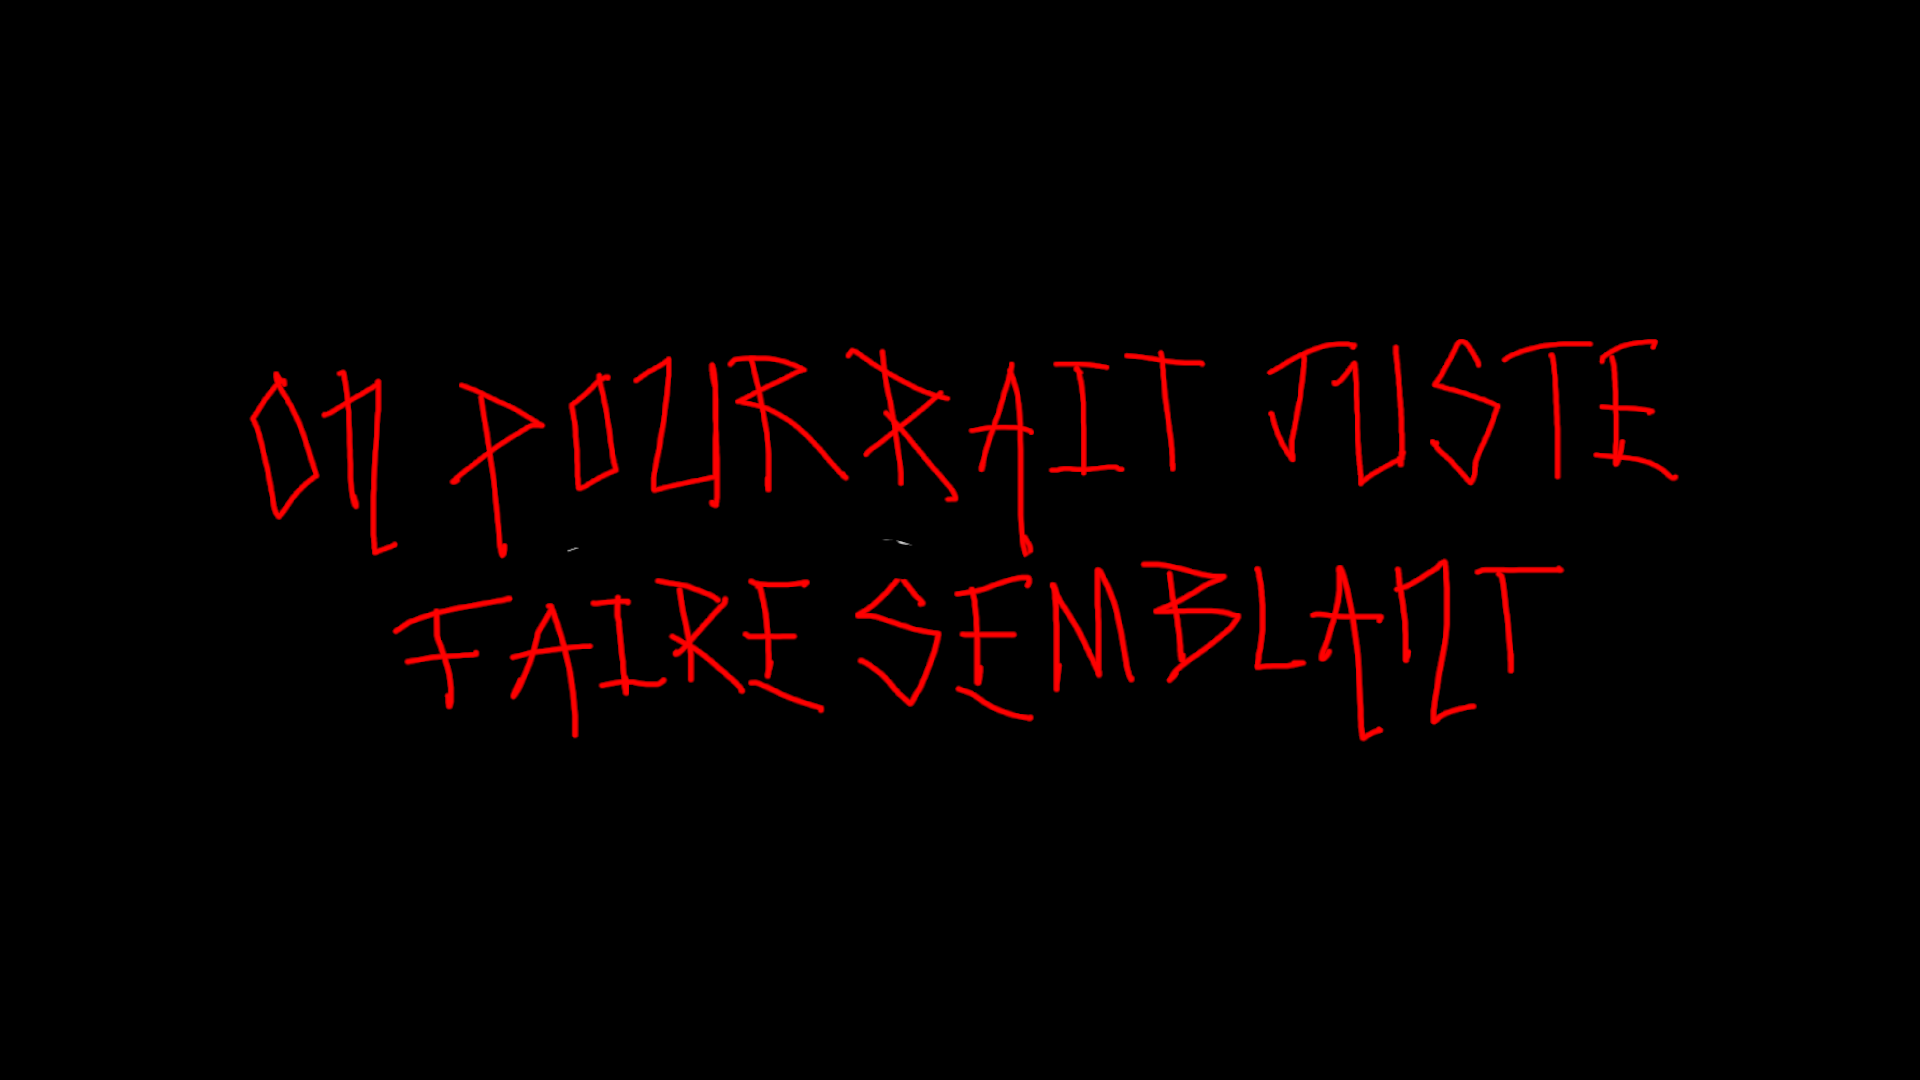 ON POURRAIT JUSTE
FAIRE SEMBLANT